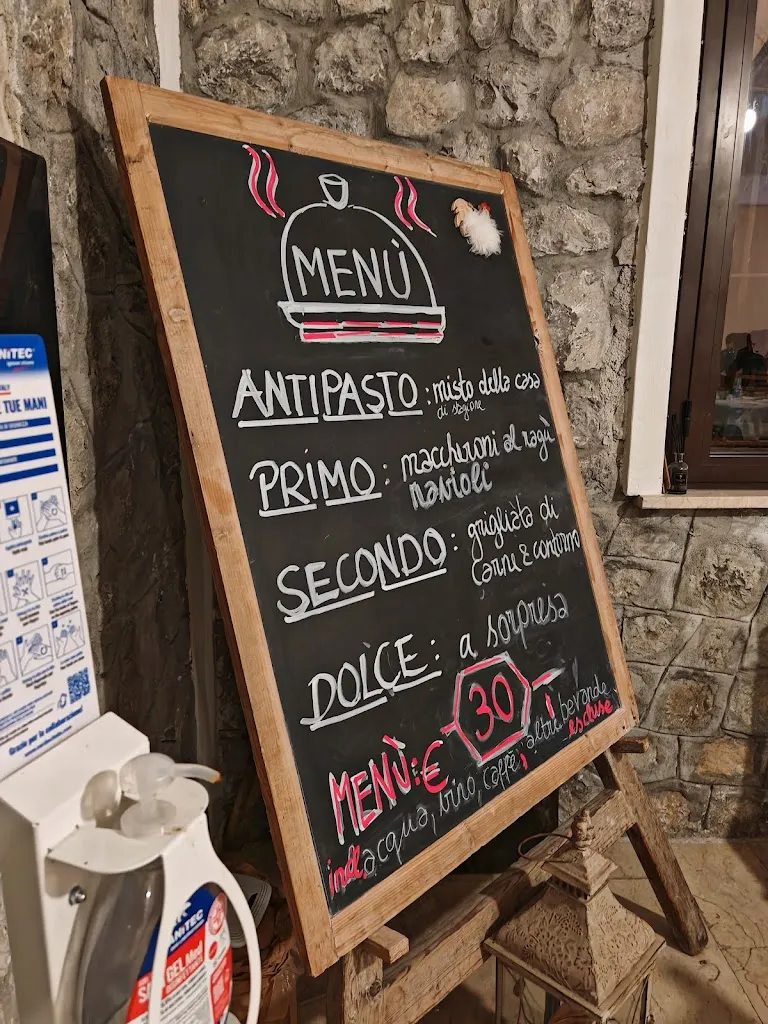 MENÙ
ANTIPASTO: misto della casa
di stagione
PRIMO: maccheroni al ragù
ravioli
SECONDO: grigliata di
carne e contorno
DOLCE: a sorpresa
MENÙ: € 30
incl. acqua, vino, caffè, altre bevande
escluse
NITEC
E TUE MANI
Grazie per la collaborazione!
ANITEC
GEL Med